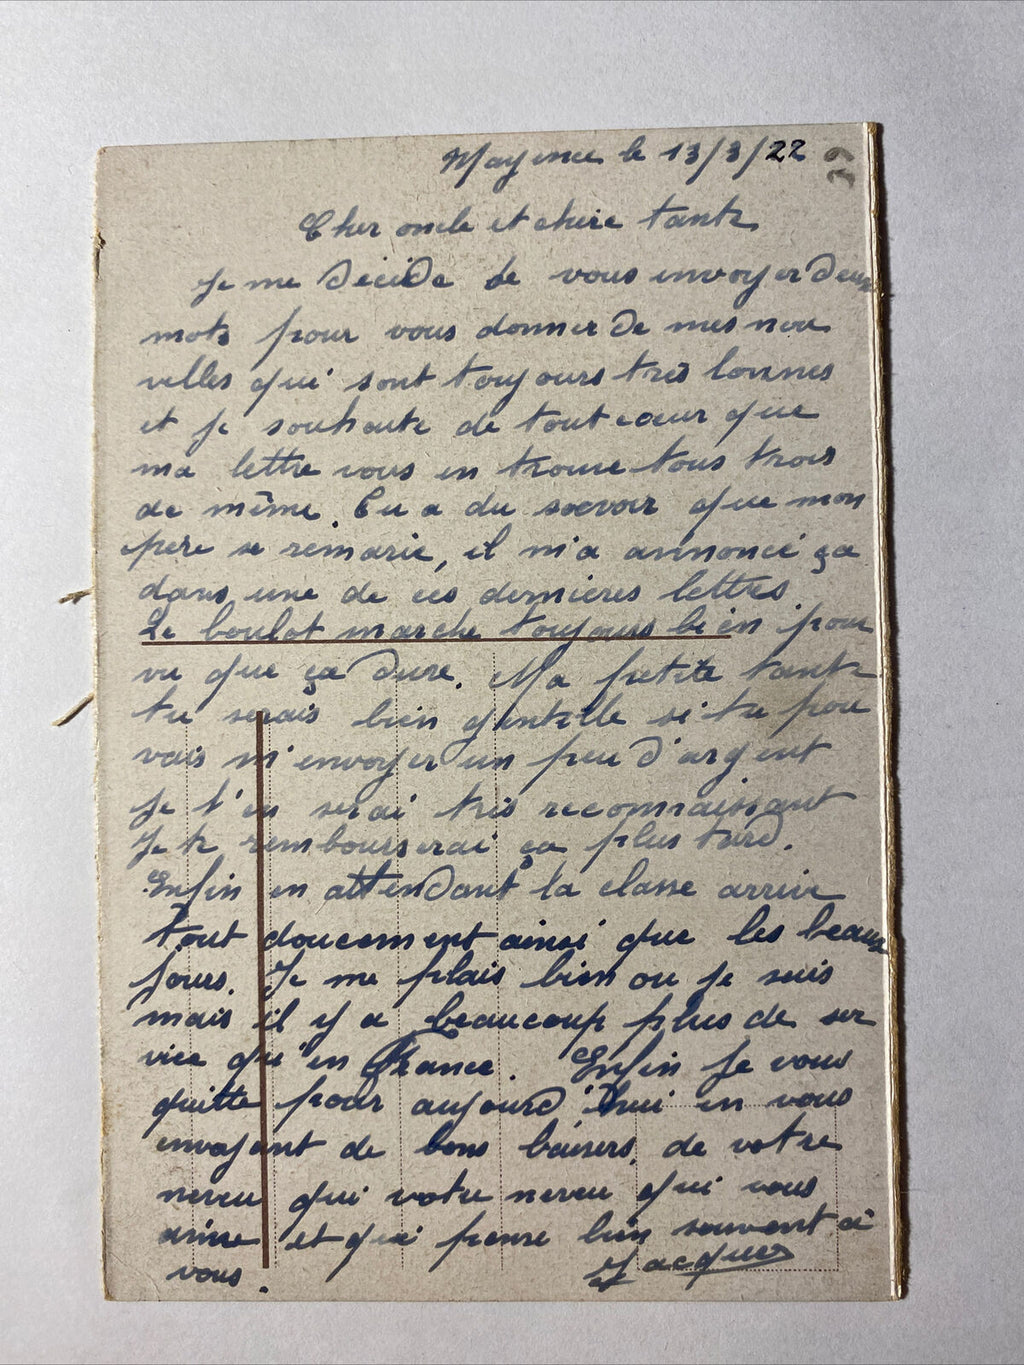 Mayence le 13/3/22
39
Cher oncle et chère tante
Je me décide de vous envoyer deux
mots pour vous donner de mes nou
velles qui sont toujours très bonnes
et je souhaite de tout cœur que
ma lettre vous en trouve tous trois
de même. Tu a du saevoir que mon
père se remarie, il m'a annoncé ça
dans une de ces dernières lettres
Le boulot marche toujours bien pour
vu que ça dure. Ma petite tante
tu serais bien gentille si tu pou
vais m'envoyer un peu d'argent
je t'en serai très reconnaissant
Je te rembourserai ça plus tard.
Enfin en attendant la classe arrive
tout doucement ainsi que les beaux
jours. Je me plais bien ou je suis
mais il y a beaucoup plus de ser
vice qu'en France. Enfin Je vous
quitte pour aujourd'hui en vous
envoyant de bons baisers, de votre
neveu qui votre neveu qui vous
aime et qui pense bien souvent à
vous.
Jacques